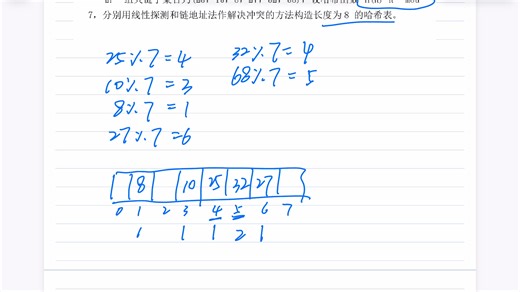 7，分别用线性探测和链地址法作解决冲突的方法构造长度为 8 的哈希表。
25%7=4 32%7=4
10%7=3 68%7=5
8%7=1
27%7=6
8 10 25 32 27
0 1 2 3 4 5 6 7
1 1 1 2 1